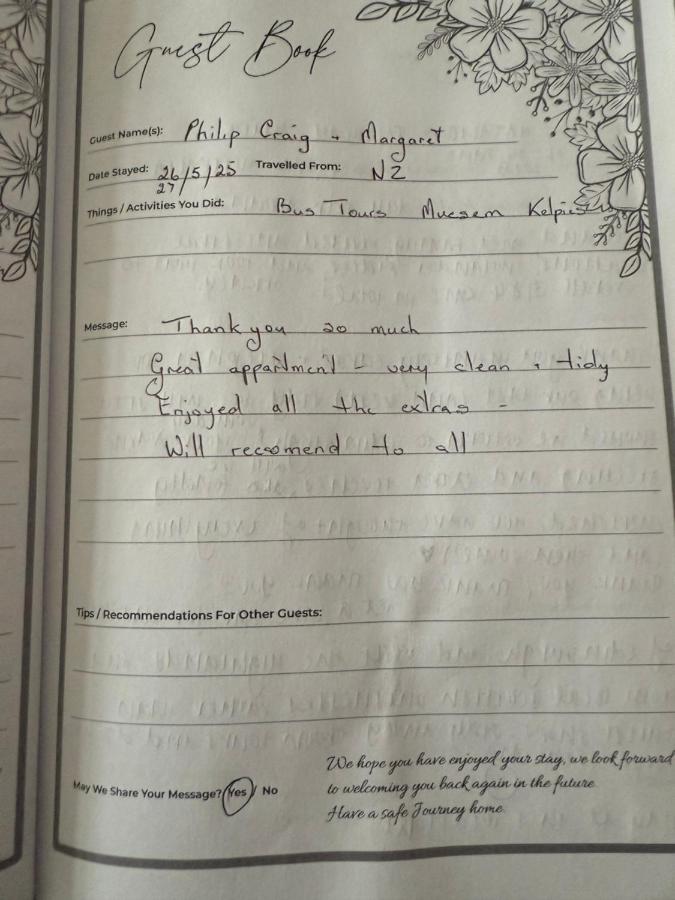 Guest Book
Guest Name(s): Philip Craig + Margaret
Date Stayed: 26/5/25 Travelled From: NZ
27
Things / Activities You Did: Bus Tours Muesem Kelpies
Message: Thank you so much
Great appartment - very clean + tidy
Enjoyed all the extras -
Will reccomend to all
Tips / Recommendations For Other Guests:
We hope you have enjoyed your stay, we look forward
May We Share Your Message? Yes / No to welcoming you back again in the future.
Have a safe Journey home.